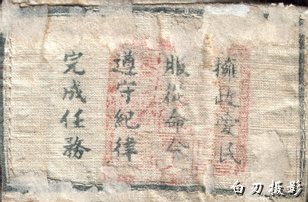 擁政愛民
服從命令
遵守紀律
完成任務
白刃攝影